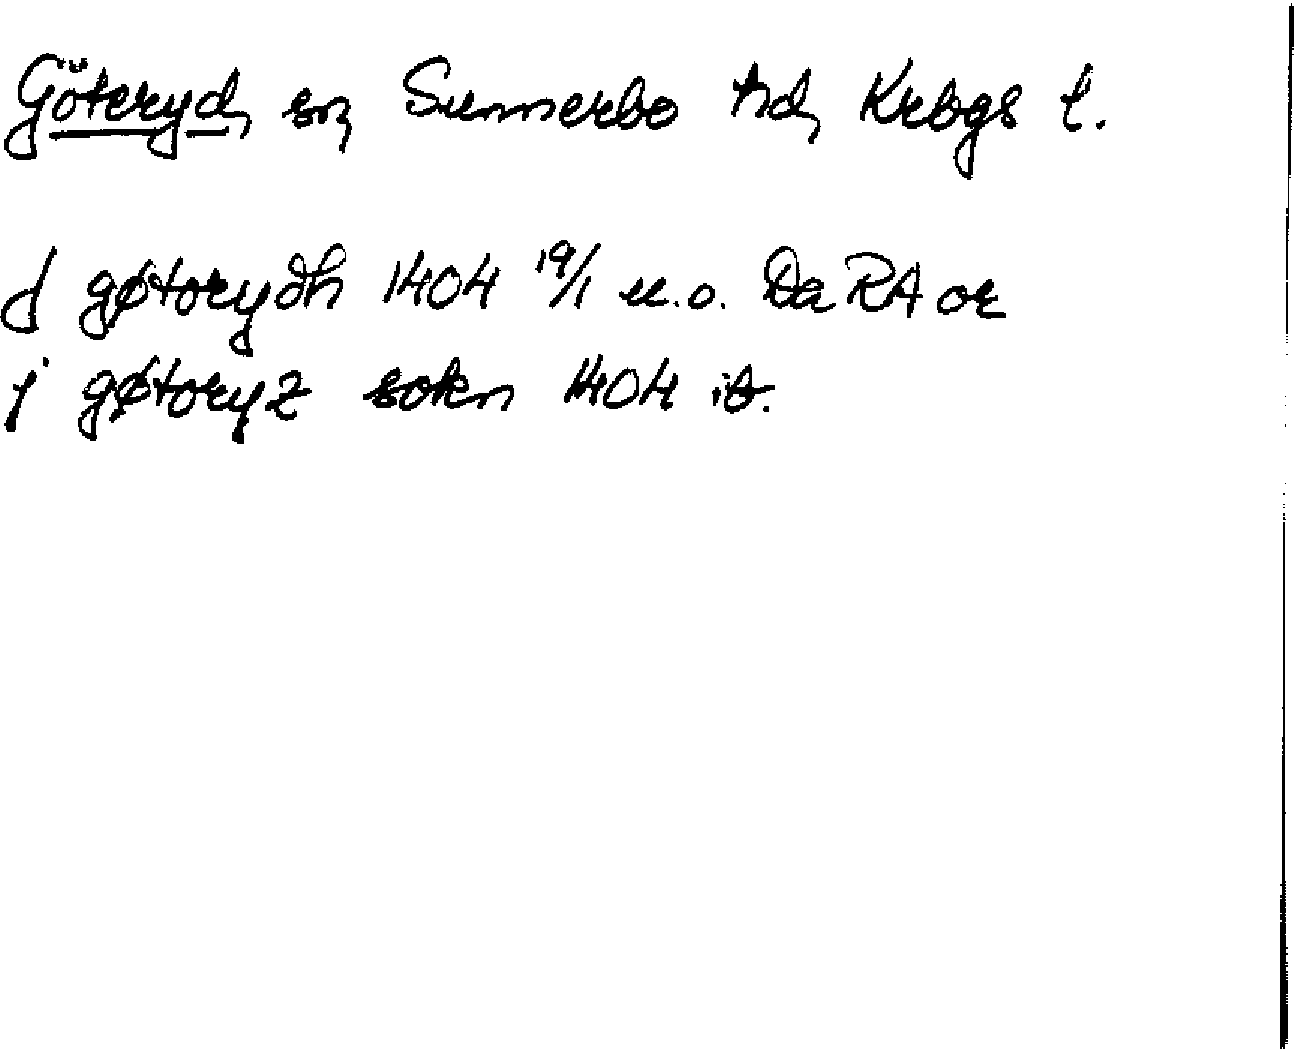 Göteryd, sn, Sunnerbo hd, Krbgs l.
J gøtorydh 1404 19/1 u.o. Da RA or
j gøtoryz sokn 1404 ib.